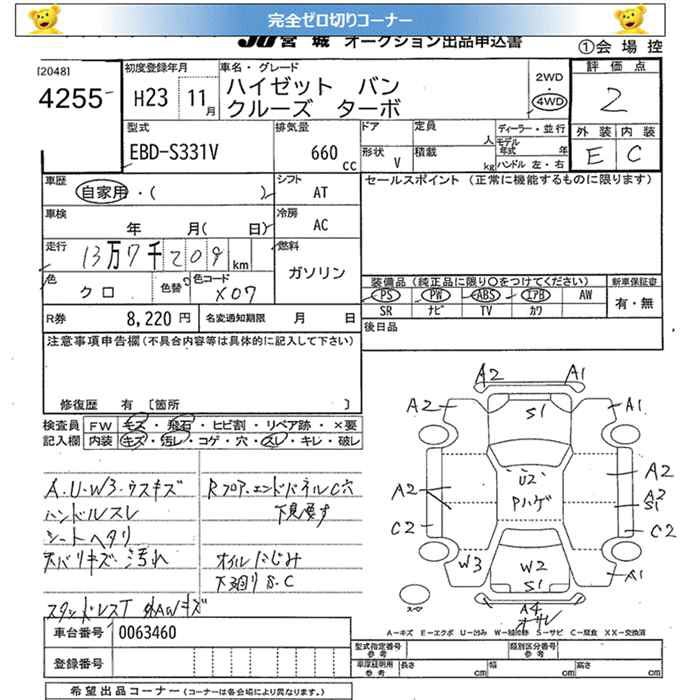 完全ゼロ切りコーナー
JU 宮城 オークション出品申込書
①会場控
[2048]
4255
初度登録年月
H23 11月
車名・グレード
ハイゼット バン
クルーズ ターボ
2WD
・
4WD
評価点
2
外装 内装
E C
型式
EBD-S331V
排気量
660 cc
ドア
定員 人
ディーラー・並行
モデル年式 年
形状 V
積載 kg
ハンドル 左・右
車歴
自家用・( )
シフト
AT
セールスポイント (正常に機能するものに限ります)
車検
年 月( 日)
冷房
AC
走行
13万7千209 km
燃料
ガソリン
色
クロ
色替
色コード
X07
装備品(純正品に限り○をつけてください)
新車保証書
PS PW ABS エアB AW
有・無
SR ナビ TV カワ
R券 8,220円
名変通知期限 月 日
後日品
注意事項申告欄(不具合内容等は具体的に記入して下さい)
修復歴 有 [箇所
検査員 FW キズ・飛石・ヒビ割・リペア跡・×要
記入欄 内装 キズ・汚レ・コゲ・穴・スレ・キレ・破レ
A・U・W3・ウスキズ
ハンドルスレ
シートヘタリ
内バリキズ・汚れ
スタッドレスT 外AWキズ
Rフロア、エンドパネルC穴
下見要す
オイルにじみ
下廻りS・C
A2 A1
A2 S1 A1
U2
Pハゲ
A2 A2
A2
S1
C2 C2
W3 W2
S1
A1
A4
オサレ
スペア
A-キズ E-エクボ U-凹み W-補修跡 S-サビ C-腐食 XX-交換済
車台番号 0063460
登録番号
型式指定番号 参考
類別区分番号 参考
車庫証明用 参考 長さ cm 幅 cm 高さ cm
希望出品コーナー(コーナーは各会場により異なります。)